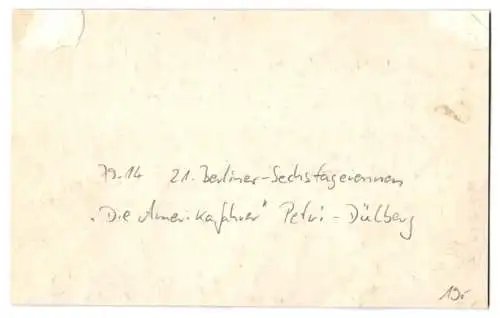 79-14 21. Berliner-Sechstagerennen
"Die Amerikafahrer" Petri - Dülberg